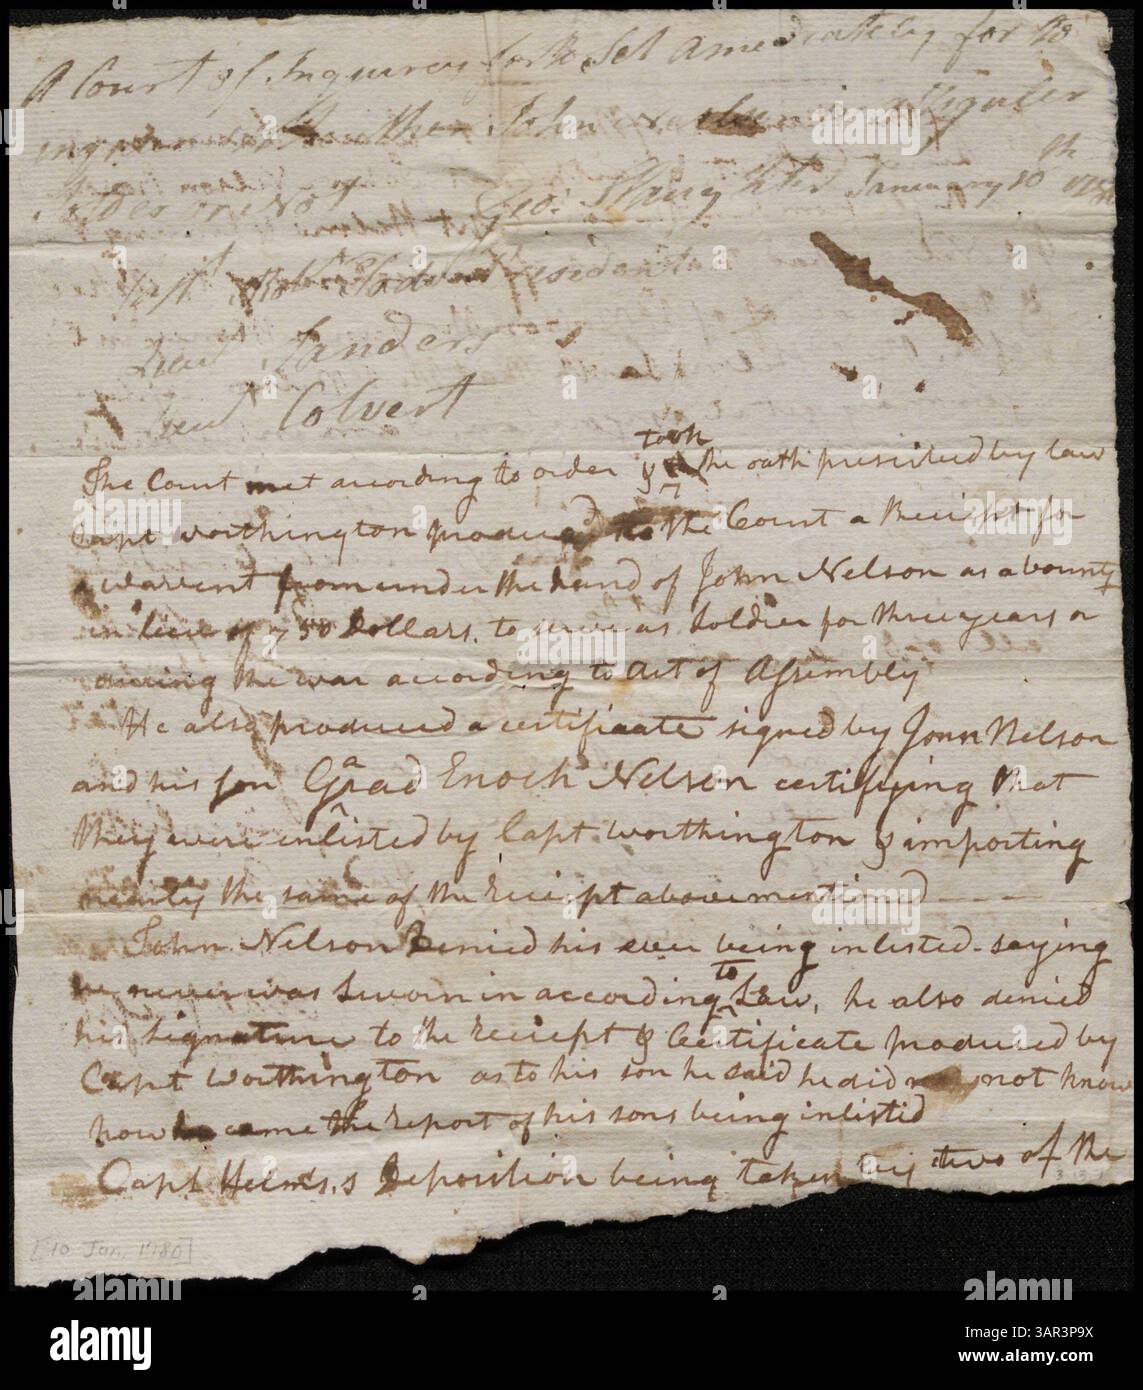 A Court of Inquirey for to Set Amediately for to
whether John Nelson is a Reguler
Soldier or Not Geo: Slaughter January 10th 178
Capt Robt Todd President
Lieut Sanders
Lieut Colvert
The Court met according to order & took the oath prescribed by law
Capt Worthington produced to the Court a Receipt for
a warrent from under the hand of John Nelson as a bounty
in lieu of 750 Dollars. to serve as Soldier for three years or
during the war according to Act of Assembly
He also produced a certificate signed by John Nelson
and his son Enoch Nelson certifying that
they were enlisted by Capt Worthington & importing
nearly the same of the receipt above mentioned ----
John Nelson Denied his ever being inlisted - saying
he never was Sworn in according to Law, he also denied
his signature to the receipt & Certificate produced by
Capt Worthington as to his son he said he did not know
how came the report of his sons being inlisted
Capt Helms,s Deposition being taken by two of the
[10 Jan. 1780]
alamy
Image ID: 3AR3P9X
www.alamy.com